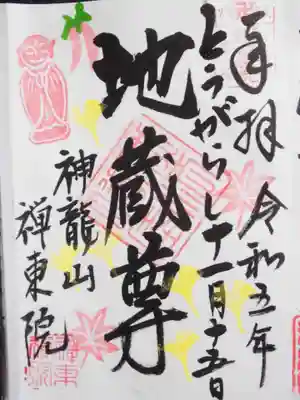 奉拝 令和五年
とうがらし 十一月十五日
地蔵尊
神龍山
禅東院